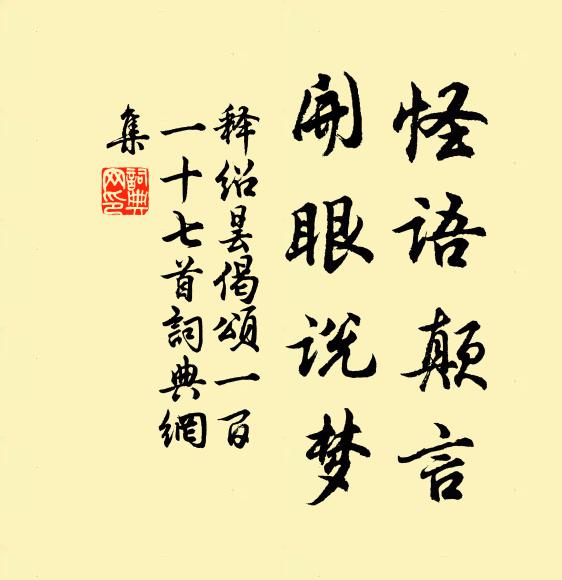 怪语颠言
開眼说梦
释绍昙偈颂一百
一十七首詞典網
集
詞典
网印